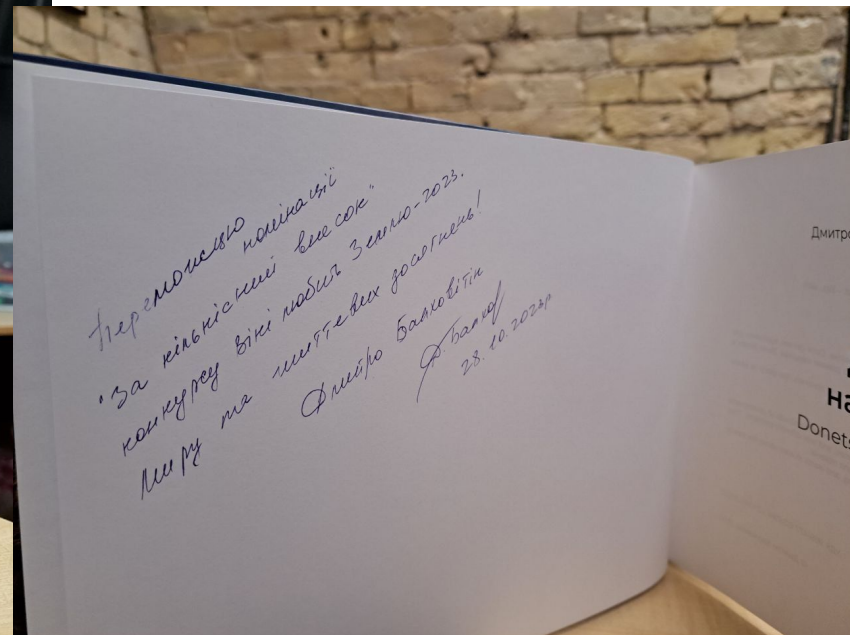 Переможцю
номінації
"За кількісний внесок"
конкурсу Вікі любить Землю-2023.
Миру та життєвих досягнень!
Дмитро Балховітін
Д.Балхов
28.10.2023р
Дмитро
на
Donets